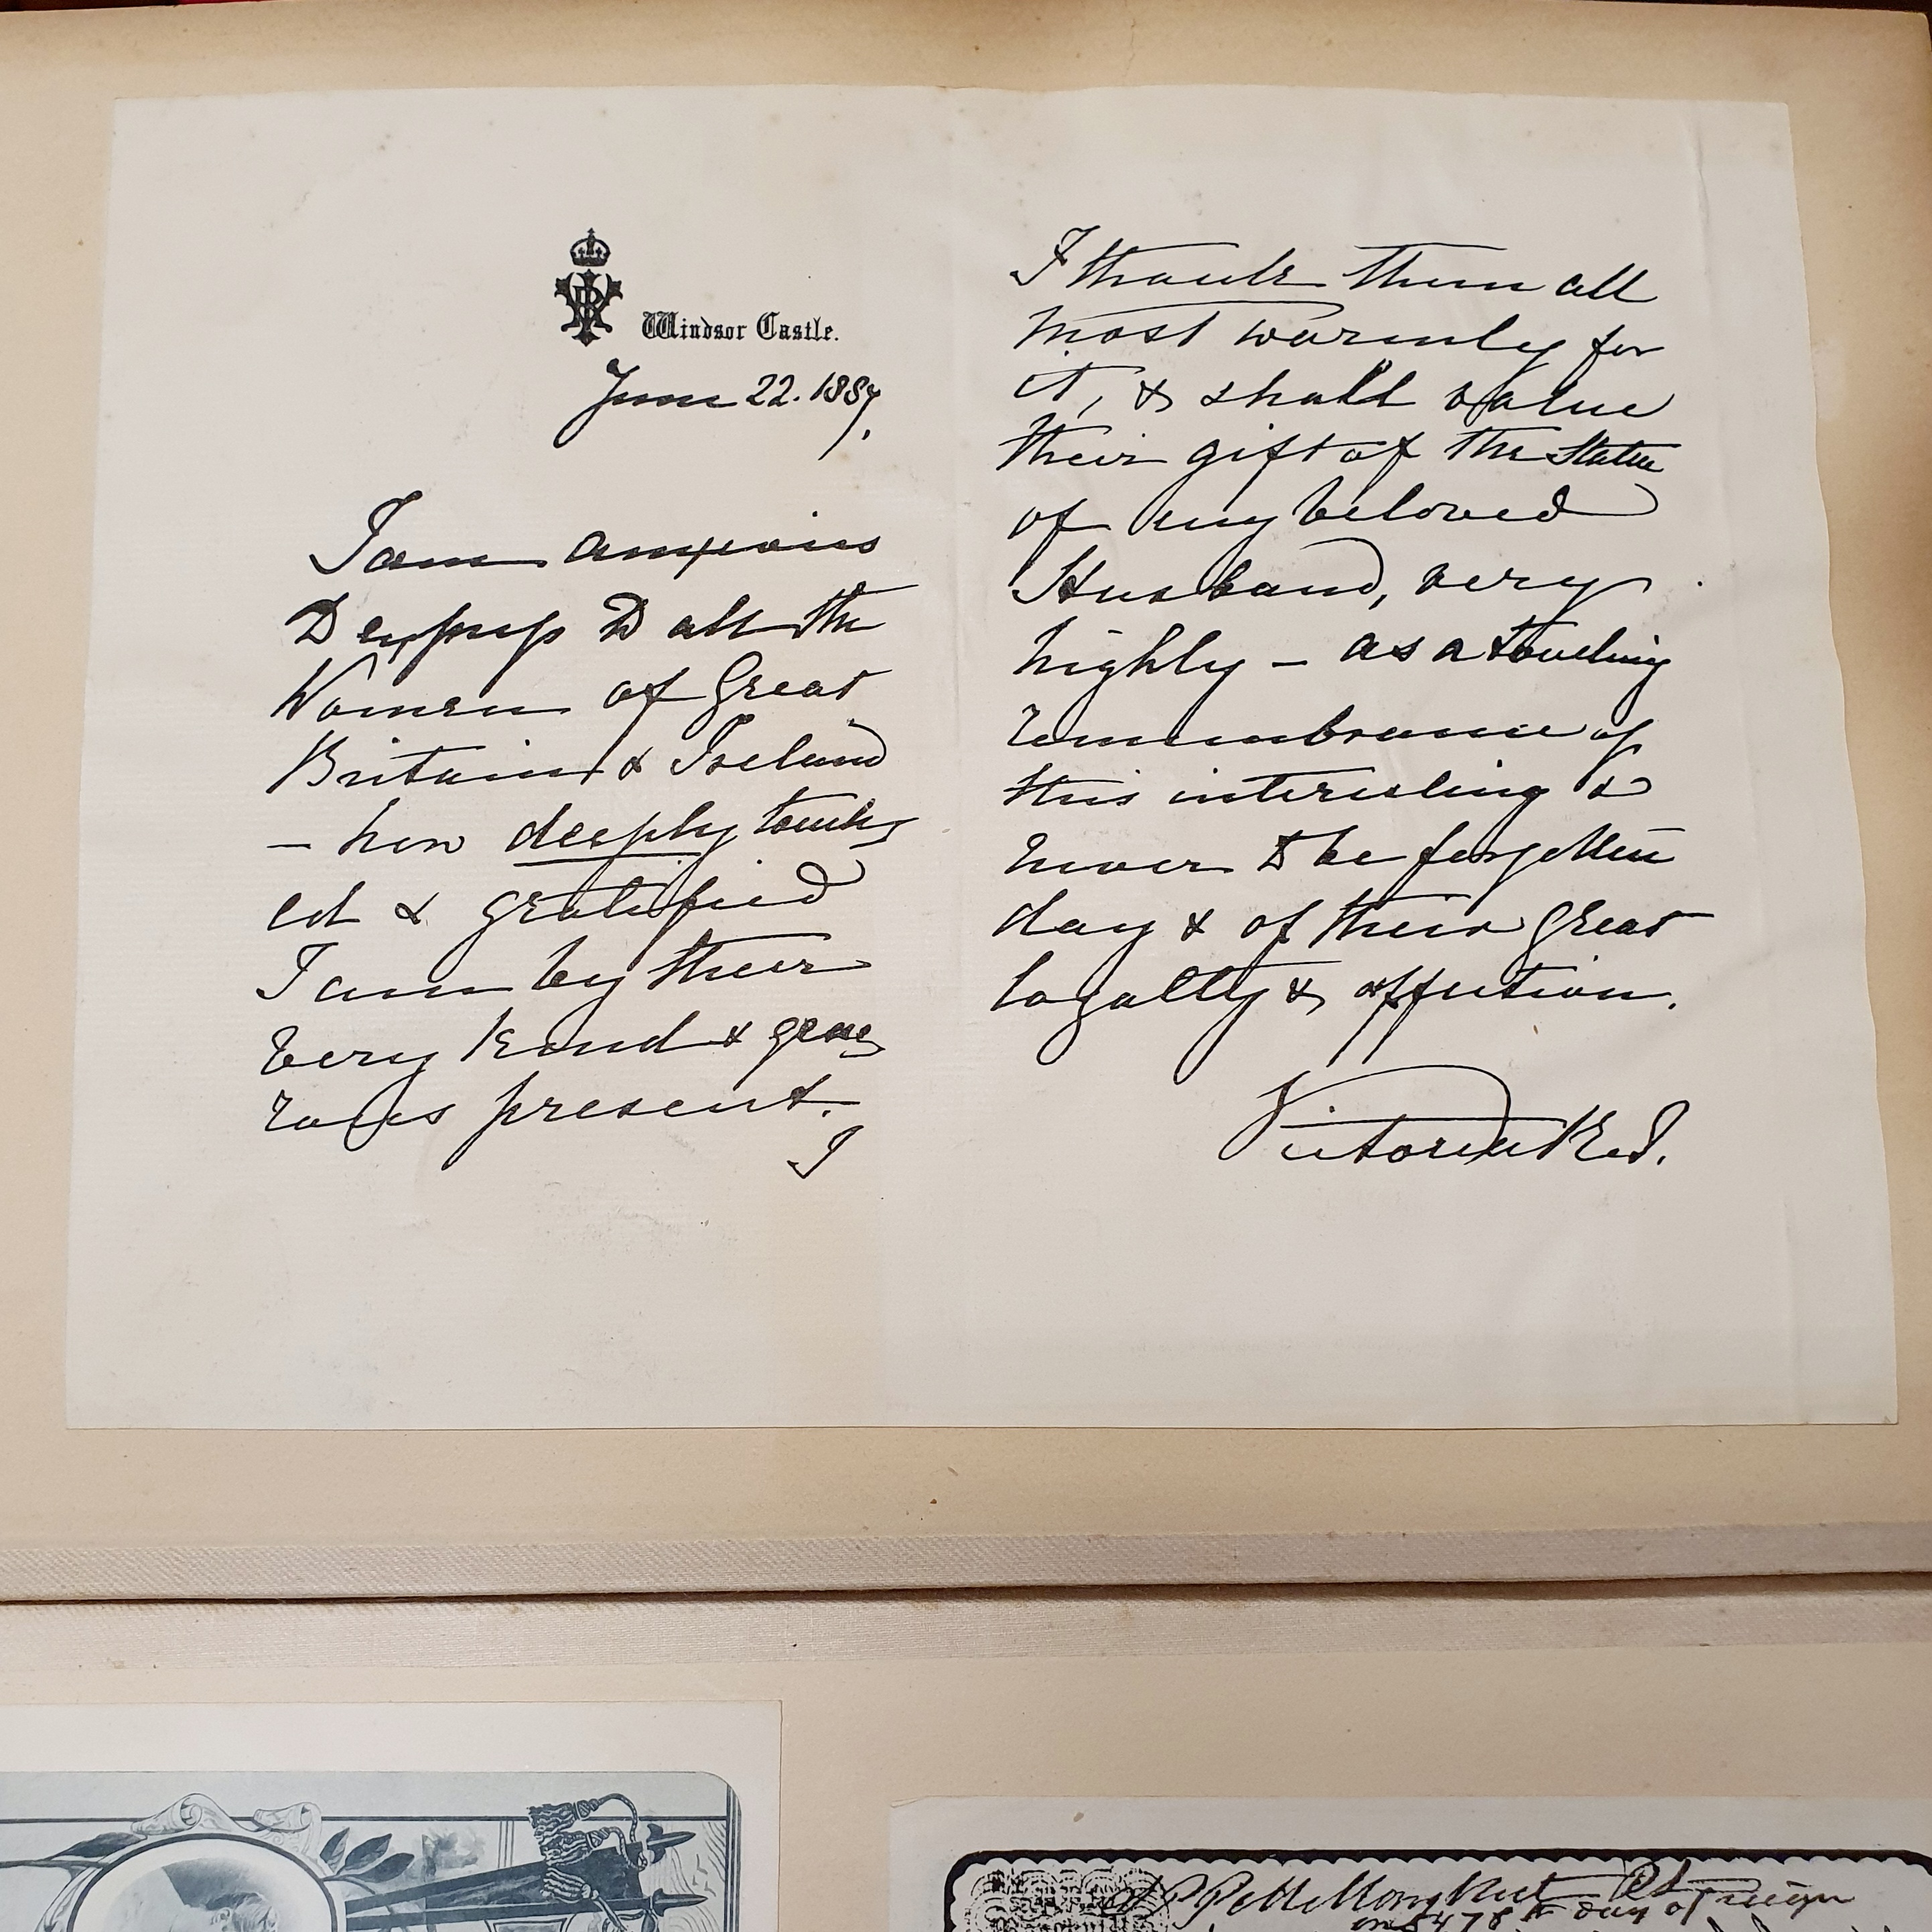 Windsor Castle.
June 22. 1887,
I am anxious
to express to all the
Women of Great
Britain & Ireland
– how deeply touch-
ed & gratified
I am by their
very kind & gene-
rous present.
I
I thank them all
most warmly for
it, & shall value
their gift of the Statue
of my beloved
Husband, very
highly – as a touching
remembrance of
this interesting &
never to be forgotten
day & of their great
loyalty & affection.
Victoria R.I.
day of